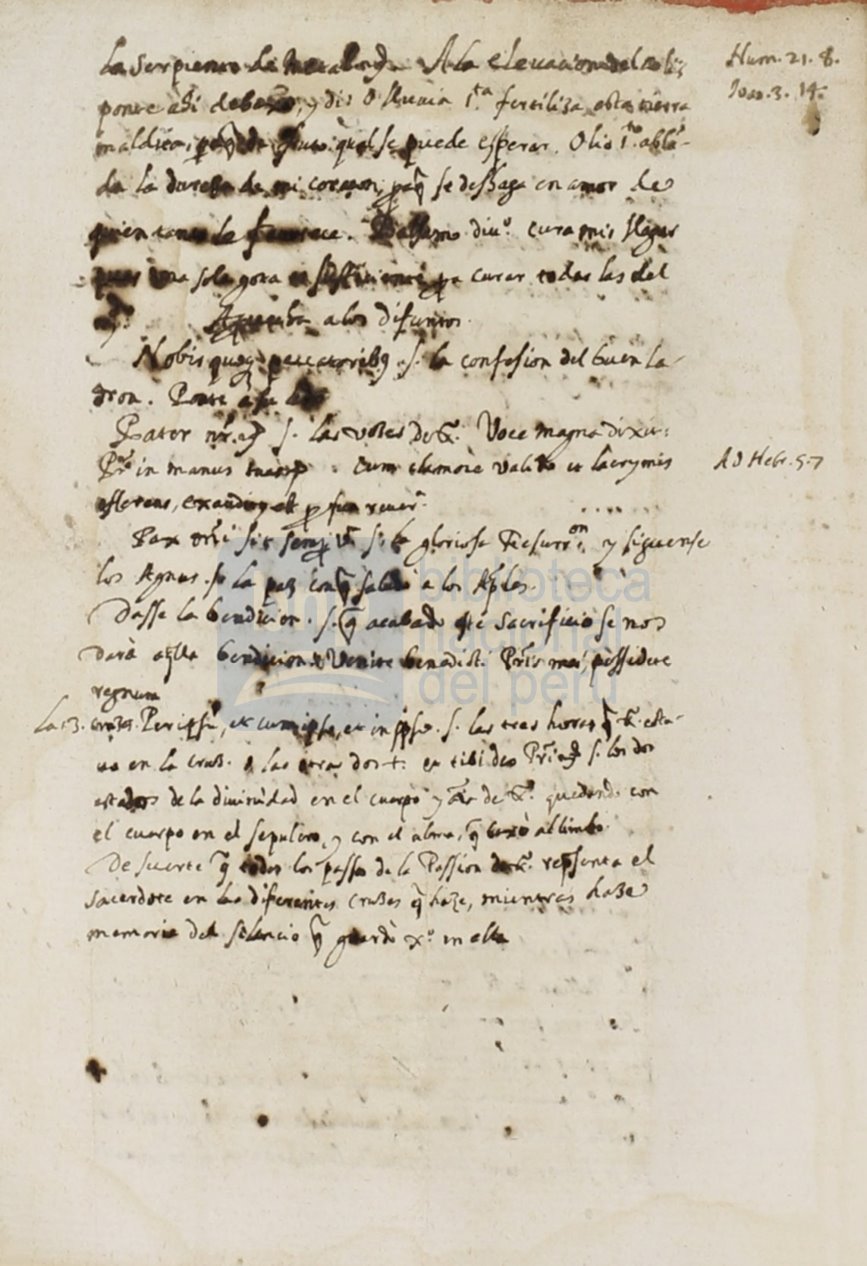 la serpiente de metal. A la elevacion del caliz
Num. 21. 8.
ponte ahi debaxo, y di: O lluvia s.ta fertiliza esta tierra
Ioan. 3. 14.
maldita, fruto qual se puede esperar. Olio s.to abla-
da la dureza de mi corazon, paq̃ se deshaga en amor de
quien tanto le favorece. Balsamo diu.º cura mis llagas
pues una sola gota es sufficiente pa curar todas las del
a los difuntos.
Nobis quoq; peccatorib9. s. la confesion del buen la-
dron. Ponte a su
Pater nr̃. s. las vozes de X. Voce magna dixit:
Pr̃ in manus tuas. cum clamore valido et lacrymis
AD Hebr. 5. 7
offerens, exauditus est p sua rever.
Pax dñi sit semp v. s. la gloriosa Resurr.on y siguense
los Agnus. s. la paz conq̃ saludò a los Aples.
Dasse la bendicion. s. q̃ acabado este sacrificio se nos
darà aq̃lla bendicion. Venite benedicti Pr̃is mei, possidete
regnum
La 3. cruzes. Per ipsũ, et cum ipso, et in ipso. s. las tres horas q̃ X. esta-
uo en la cruz. las otras dos +. es tibi Deo Pr̃i s. los dos
estados de la diuinidad en el cuerpo y aĩa de X. quedando con
el cuerpo en el sepulcro, y con el alma, q̃ baxò al limbo.
De suerte q̃ todos los passos de la Passion de X. repsenta el
sacerdote en las diferentes cruzes q̃ haze, mientras haze
memoria del silencio q̃ guardò xº. en ella
biblioteca
nacional
del perú